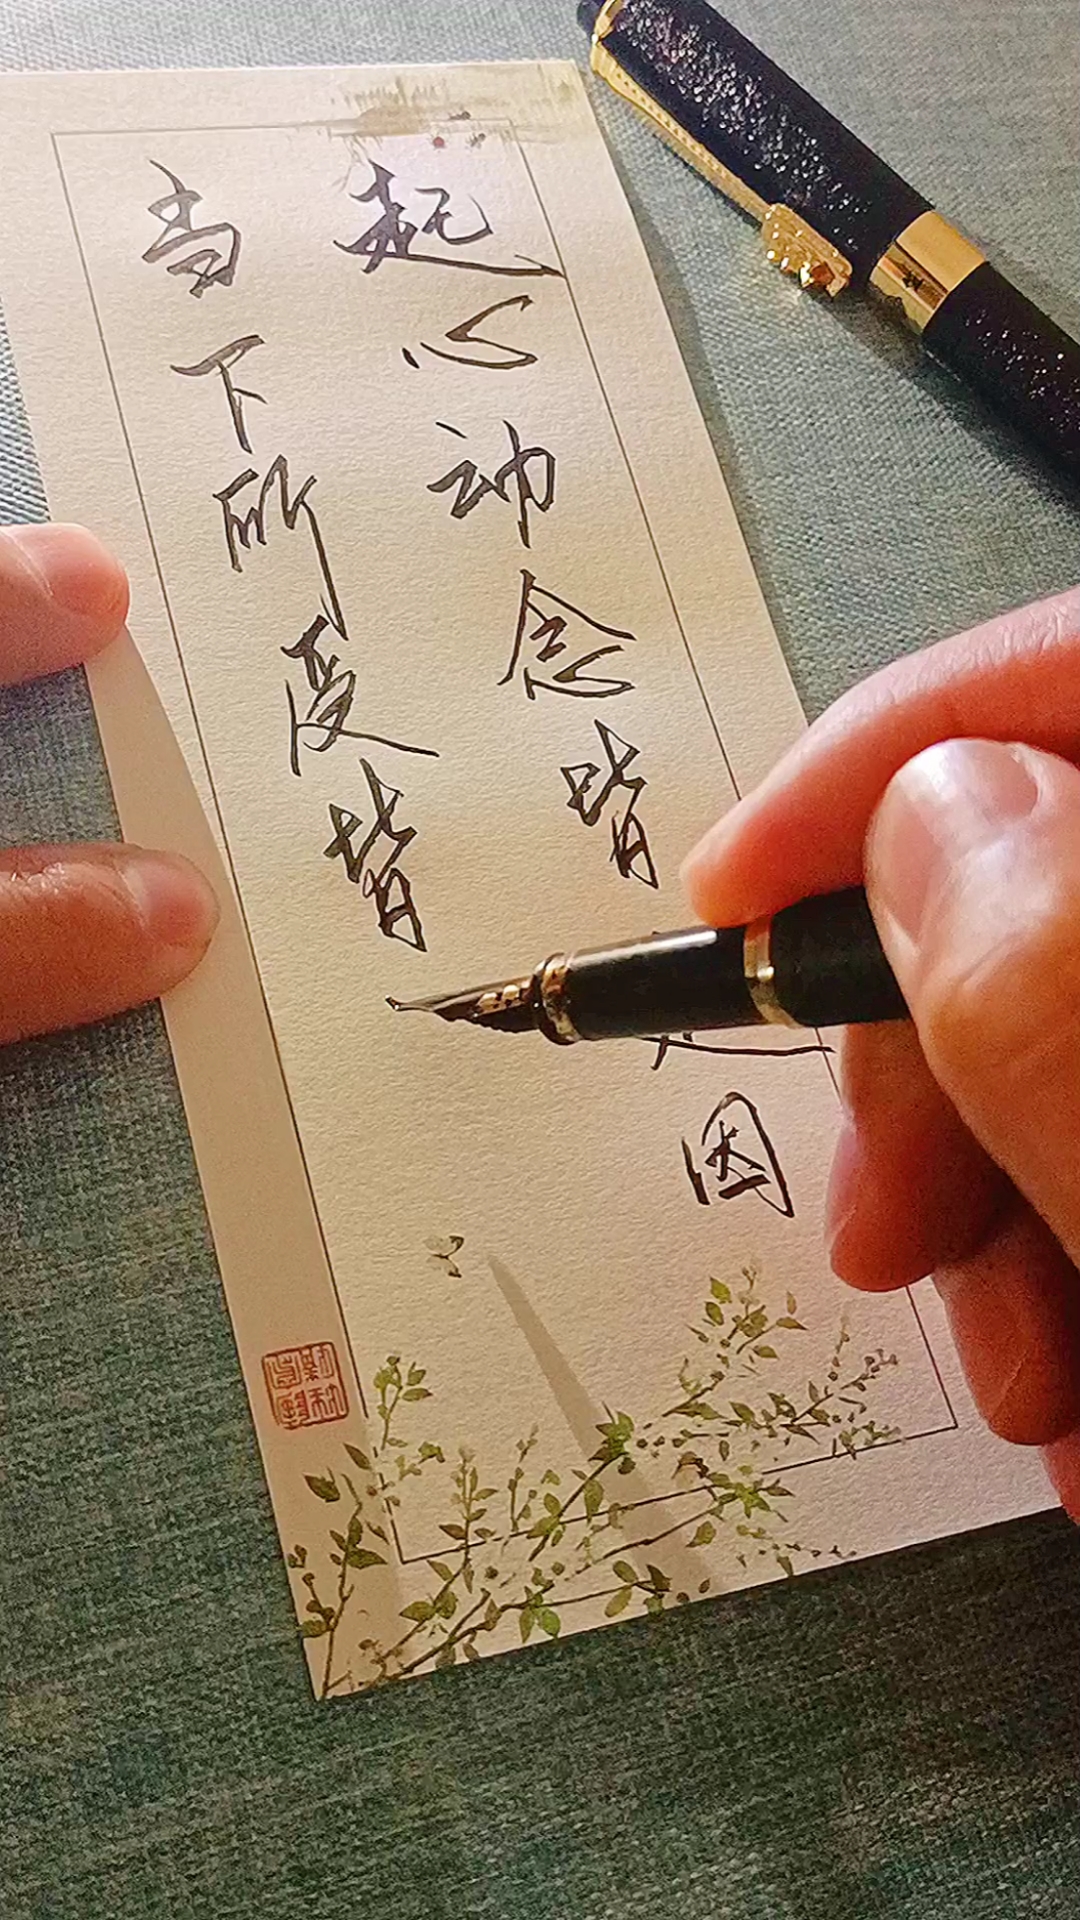 起心动念皆是因
当下所受皆